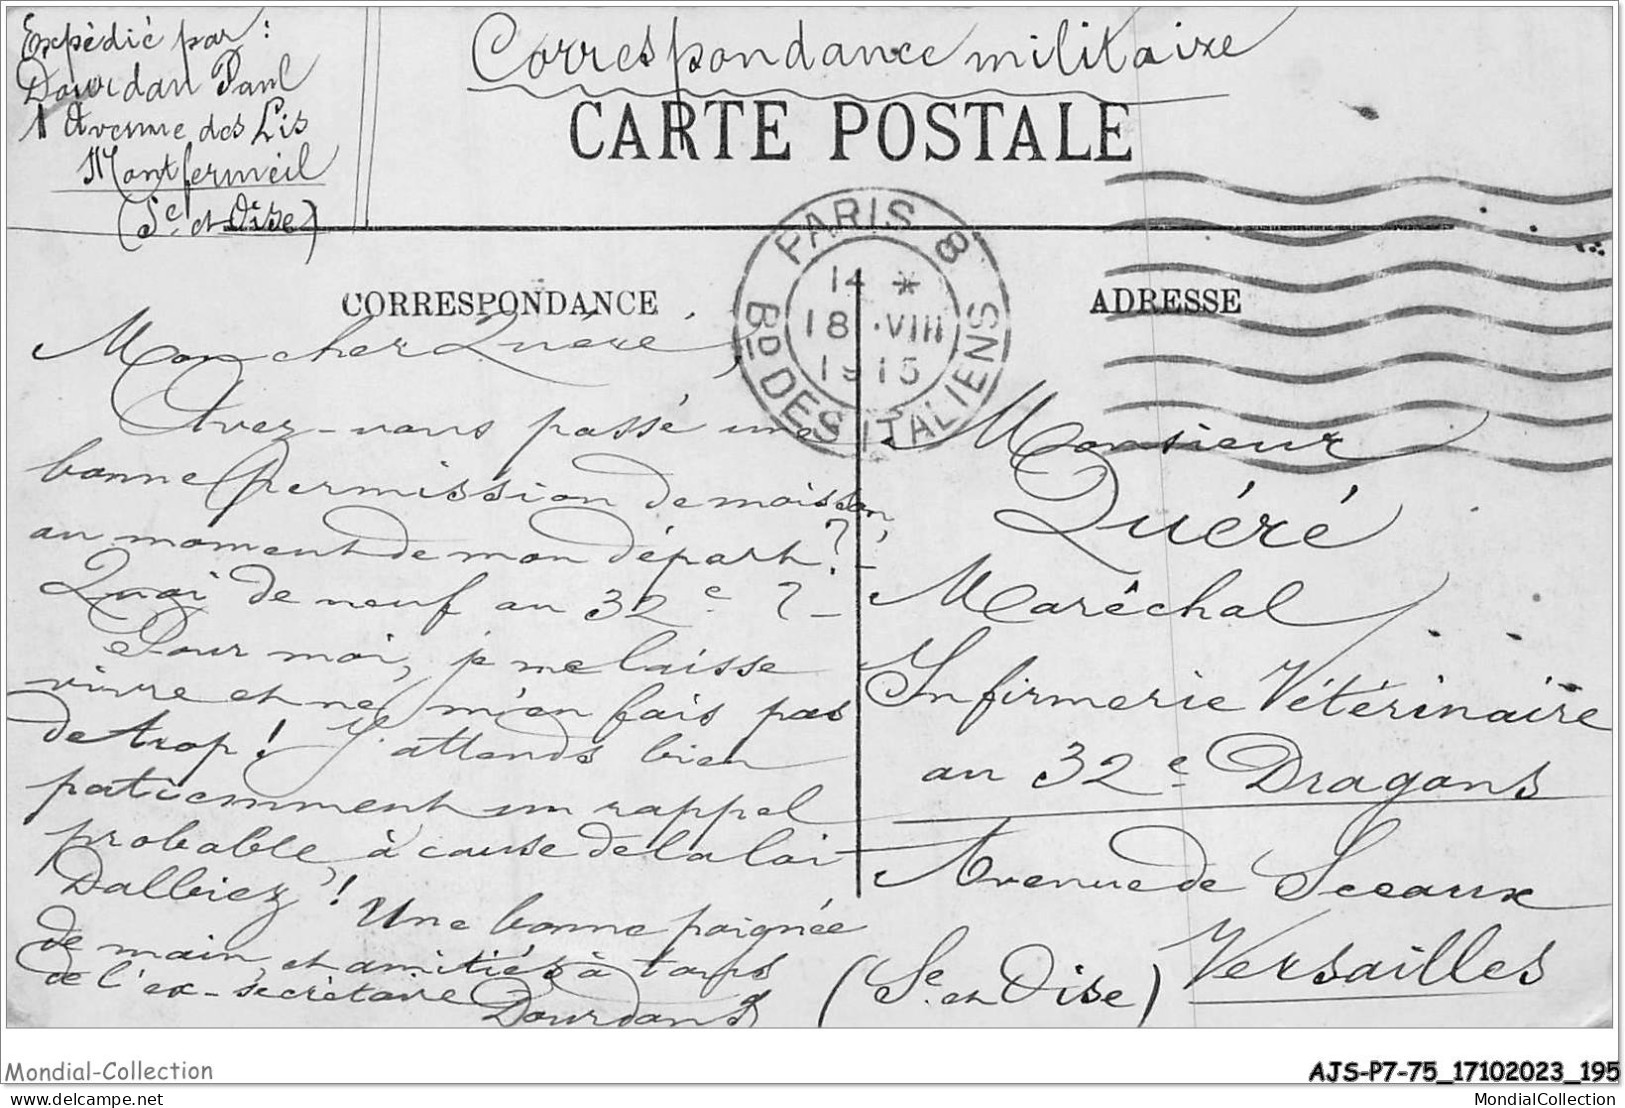 Expédié par :
Dourdan Paul
1 Avenue des Lis
Montfermeil
(Se et Oise)
Correspondance militaire
CARTE POSTALE
PARIS 8
14 *
18 · VIII
1915
BD DES ITALIENS
CORRESPONDANCE
Mon cher Quéré,
Avez-vous passé une
bonne permission de moisson,
au moment de mon départ ? -
Quoi de neuf au 32e ? -
Pour moi, je me laisse
vivre et ne m'en fais pas
de trop ! J'attends bien
patiemment un rappel
probable, à cause de la loi
Dalbiez ! Une bonne poignée
de main, et amitiés à tous
de l'ex-secrétaire Dourdan
ADRESSE
Monsieur
Quéré
Maréchal
Infirmerie Vétérinaire
au 32e Dragons
Avenue de Sceaux
Versailles
(Se et Oise)
Mondial-Collection
AJS-P7-75_17102023_195
delcampe.net
MondialCollection